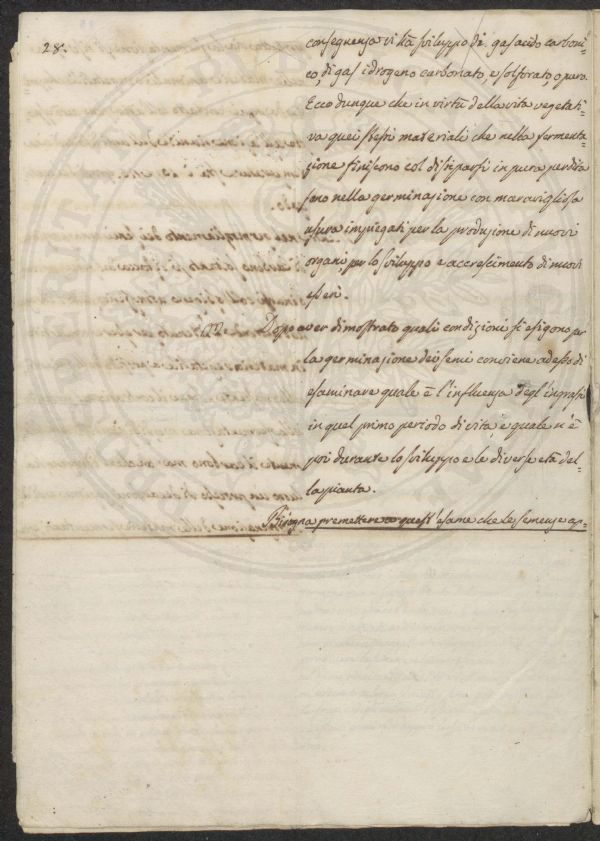 28.
conseguenza vi ha sviluppo di gas acido carboni=
co, di gas idrogeno carbonato, e solforato, o puro.
Ecco dunque che in virtù della vita vegetati=
va quei stessi materiali che nella fermenta=
zione finiscono col dissiparsi in pura perdita
sono nella germinazione con maravigliosa
usura impiegati per la produzione di nuovi
organi, per lo sviluppo e accrescimento di nuovi
esseri.
Dopo aver dimostrato quali condizioni si esigono per
la germinazione dei semi conviene adesso di
esaminare quale è l'influenza degl'ingrassi
in quel primo periodo di vita, e quale n'è
poi durante lo sviluppo e le diverse età del=
la pianta.
Bisogna premettere a quest'esame che le semenze ap=